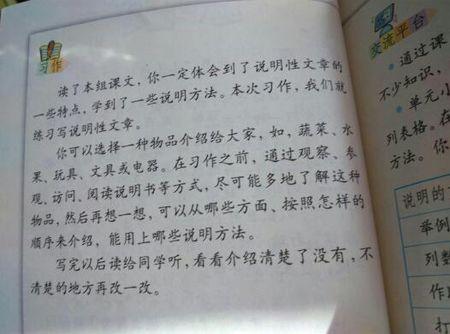 习作
读了本组课文，你一定体会到了说明性文章的
一些特点，学到了一些说明方法。本次习作，我们就
练习写说明性文章。
你可以选择一种物品介绍给大家，如，蔬菜、水
果、玩具、文具或电器。在习作之前，通过观察、参
观、访问、阅读说明书等方式，尽可能多地了解这种
物品，然后再想一想，可以从哪些方面、按照怎样的
顺序来介绍，能用上哪些说明方法。
写完以后读给同学听，看看介绍清楚了没有，不
清楚的地方再改一改。
交流平台
通过课
不少知识，
单元小
列表格。在
方法。你
说明的方
举例
列数
作比
打